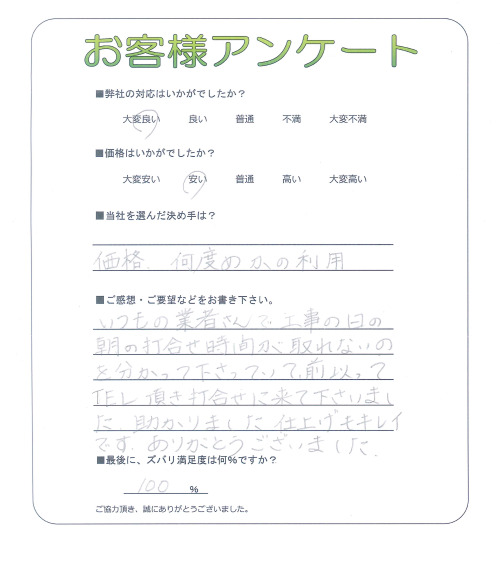 お客様アンケート
■弊社の対応はいかがでしたか？
大変良い 良い 普通 不満 大変不満
■価格はいかがでしたか？
大変安い 安い 普通 高い 大変高い
■当社を選んだ決め手は？
価格．何度めかの利用
■ご感想・ご要望などをお書き下さい。
いつもの業者さんで工事の日の
朝の打合せ時間が取れないの
を分かって下さっていて、前以って
TEL頂き打合せに来て下さいまし
た 助かりました 仕上げもキレイ
です．ありがとうございました．
■最後に、ズバリ満足度は何％ですか？
100 %
ご協力頂き、誠にありがとうございました。